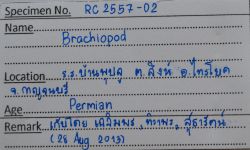 Specimen No. RC 2557-02
Name
Brachiopod
Location ร.ร.บ้านพุปลู ต.สิงห์ อ.ไทรโยค
จ.กาญจนบุรี
Age Permian
Remark เก็บโดย เฉลิมพร, ทิวาพร, สุธารัตน์
(28 Aug 2013)